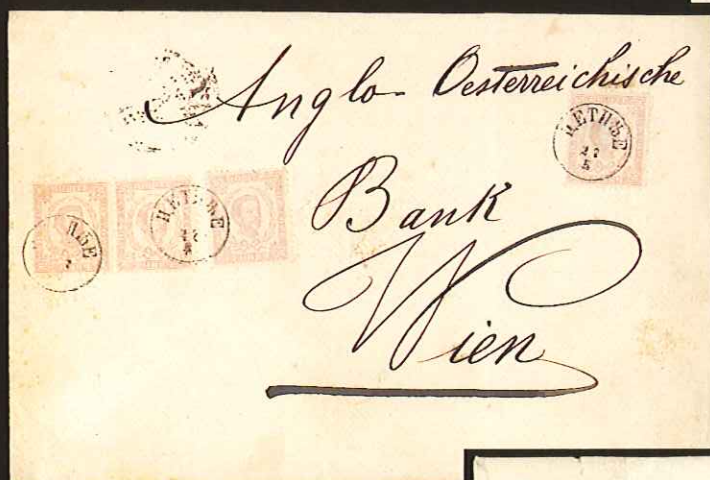 Anglo-Oesterreichische
Bank
Wien
ЦЕТИЊЕ
ЦЕТИЊЕ